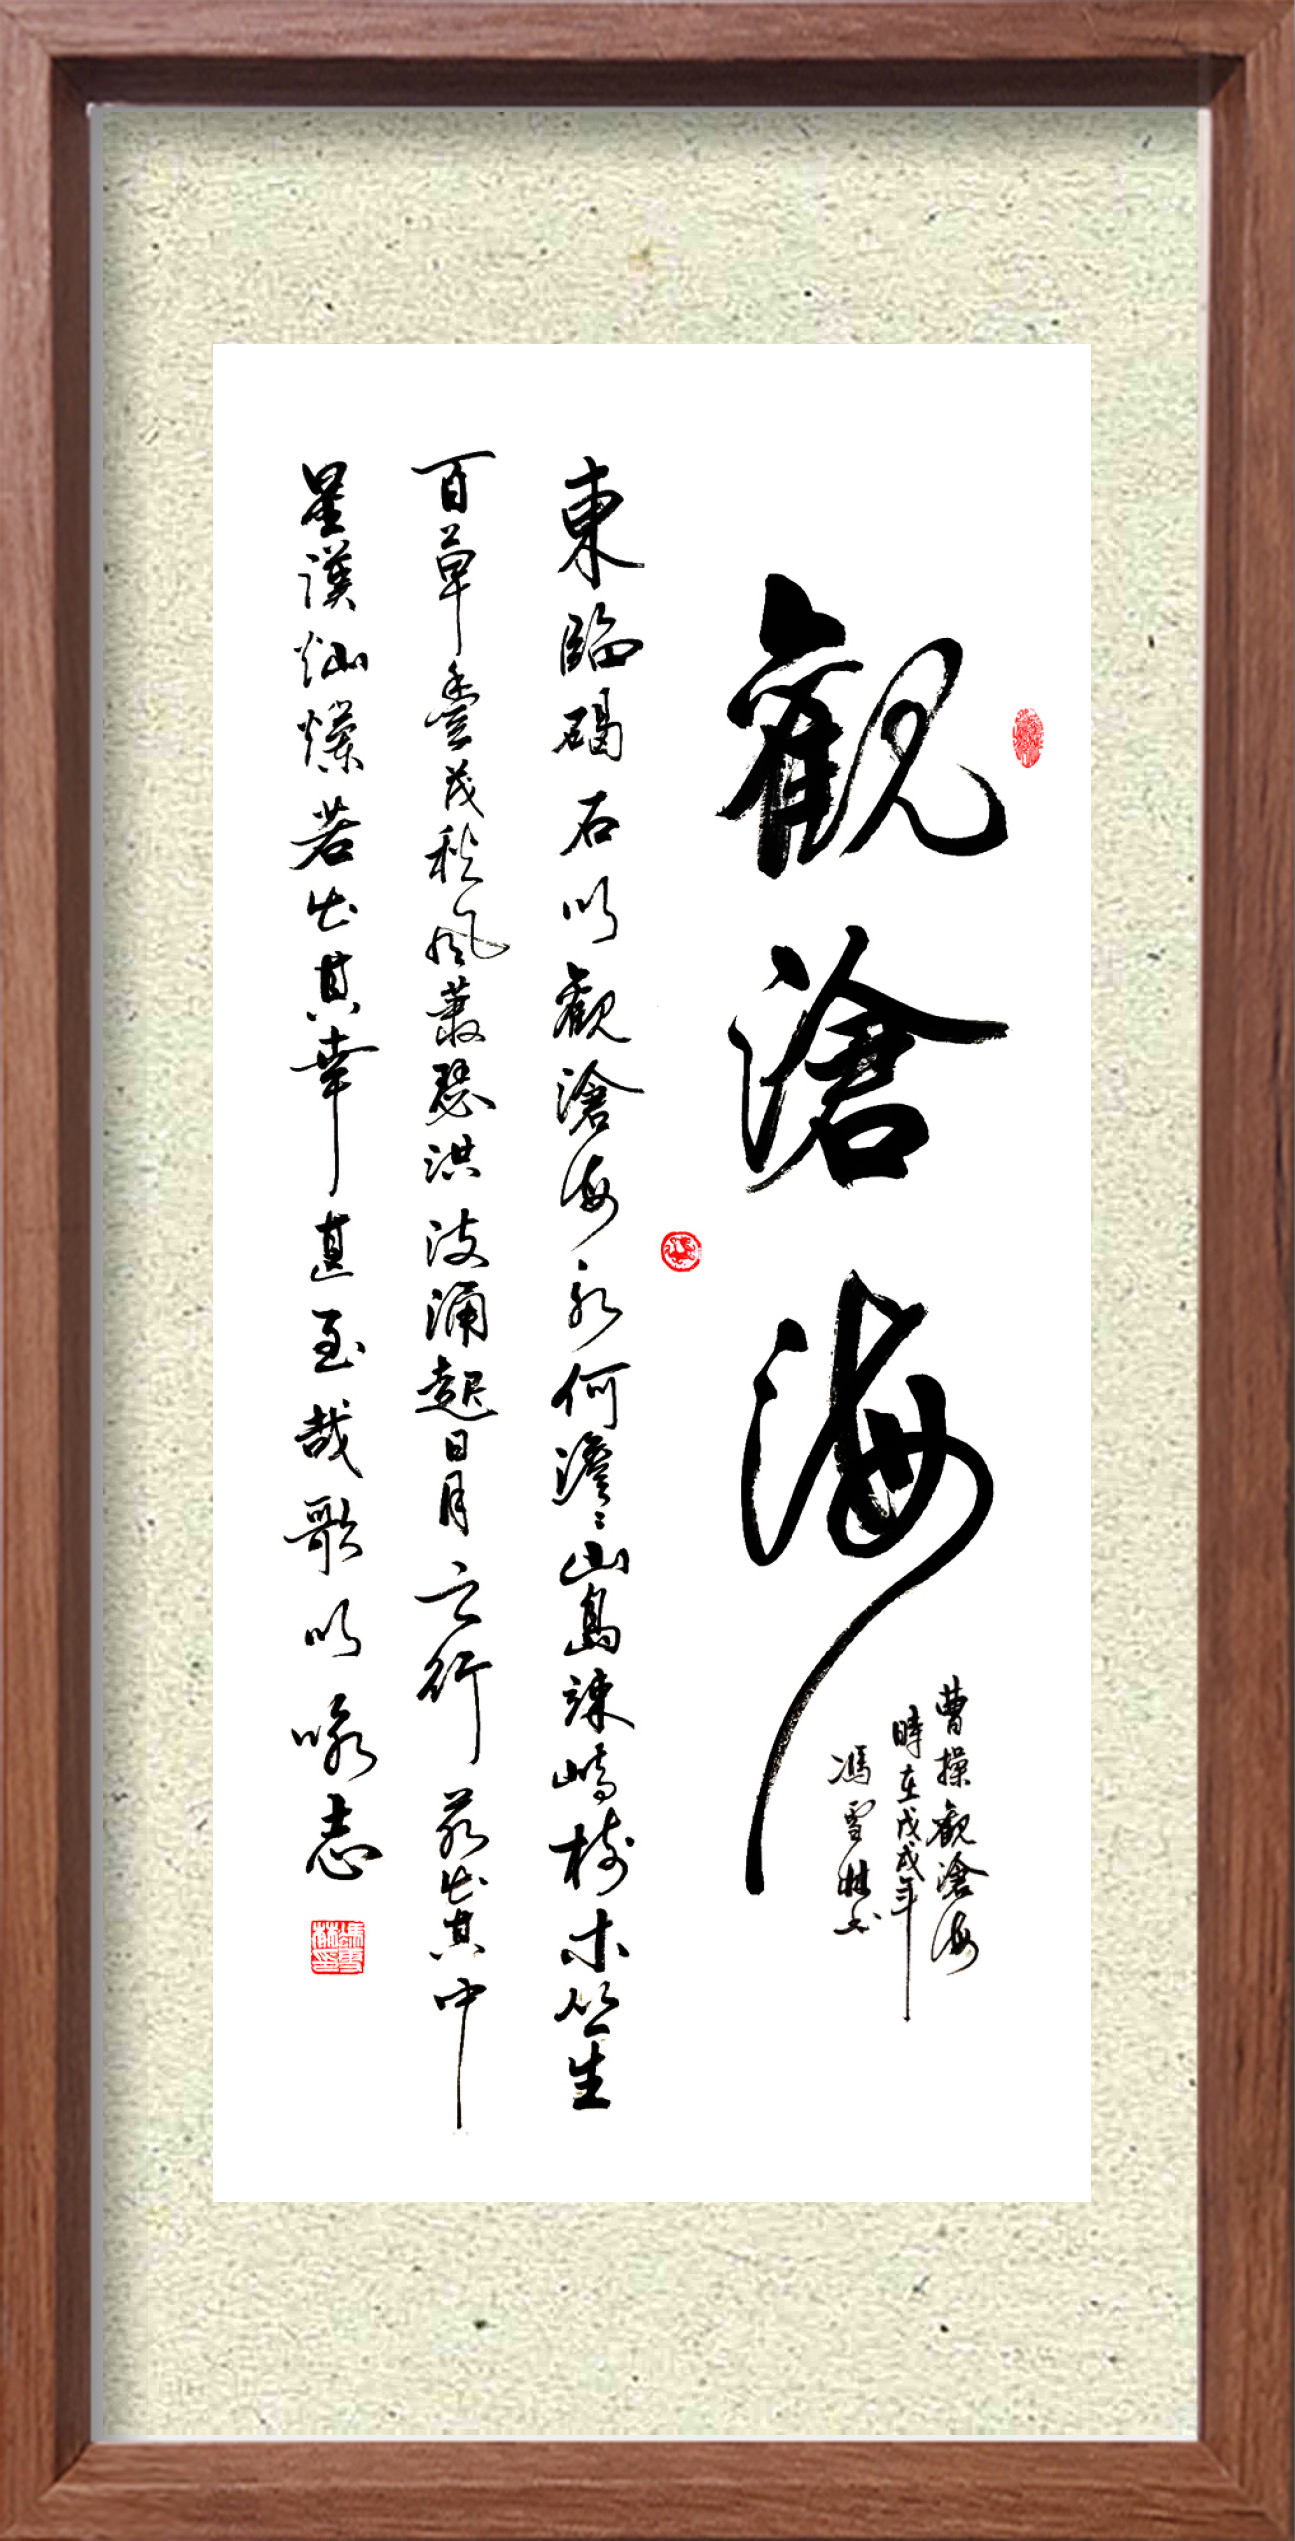 觀滄海
曹操觀滄海
時在戊戌年
馮雪林书
東臨碣石以觀滄海水何澹々山島竦峙树木丛生
百草豐茂秋風蕭瑟洪波涌起日月之行若出其中
星漢灿爛若出其幸甚至哉歌以咏志
馮雪林印